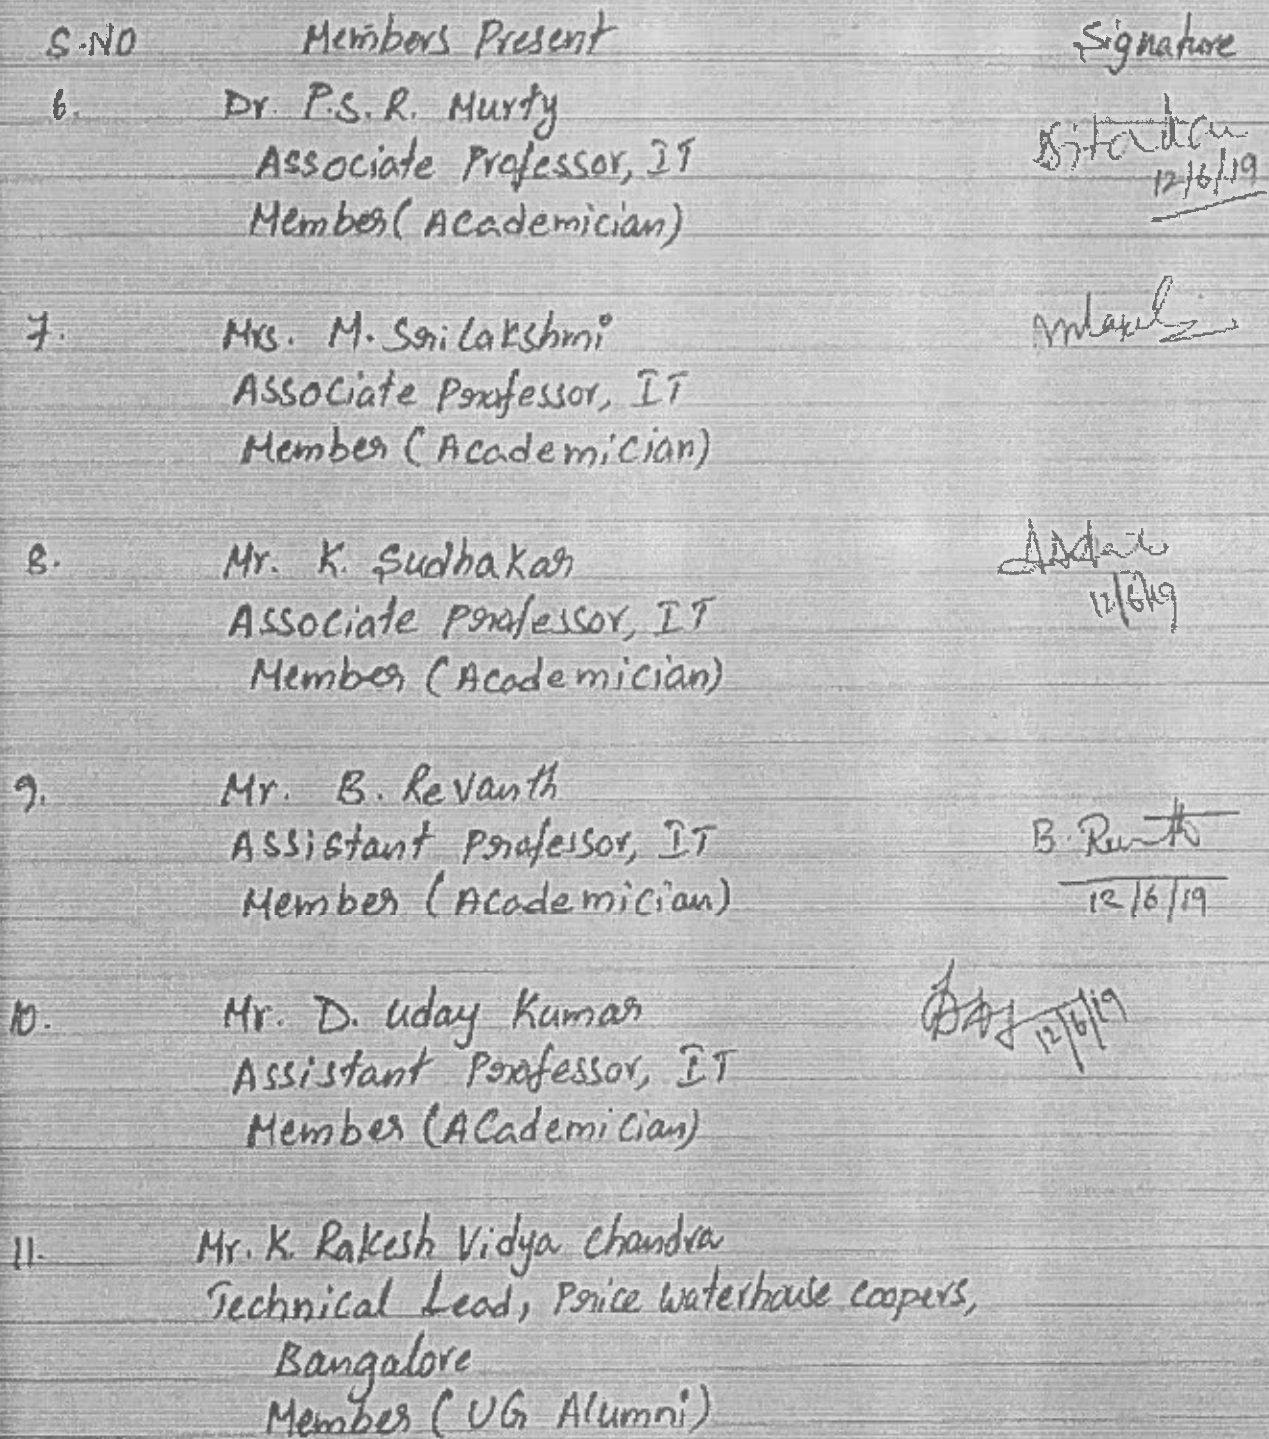 S.NO Members Present Signature
6. Dr. P.S.R. Murty
Associate Professor, IT
12/6/19
Member (Academician)
7. Mrs. M. Srilakshmi
Associate Professor, IT
Member (Academician)
8. Mr. K. Sudhakar
12/6/19
Associate Professor, IT
Member (Academician)
9. Mr. B. Revanth
Assistant Professor, IT B.
Member (Academician) 12/6/19
10. Mr. D. Uday Kumar 12/6/19
Assistant Professor, IT
Member (Academician)
11. Mr. K. Rakesh Vidya Chandra
Technical Lead, Price Waterhouse Coopers,
Bangalore
Member (UG Alumni)